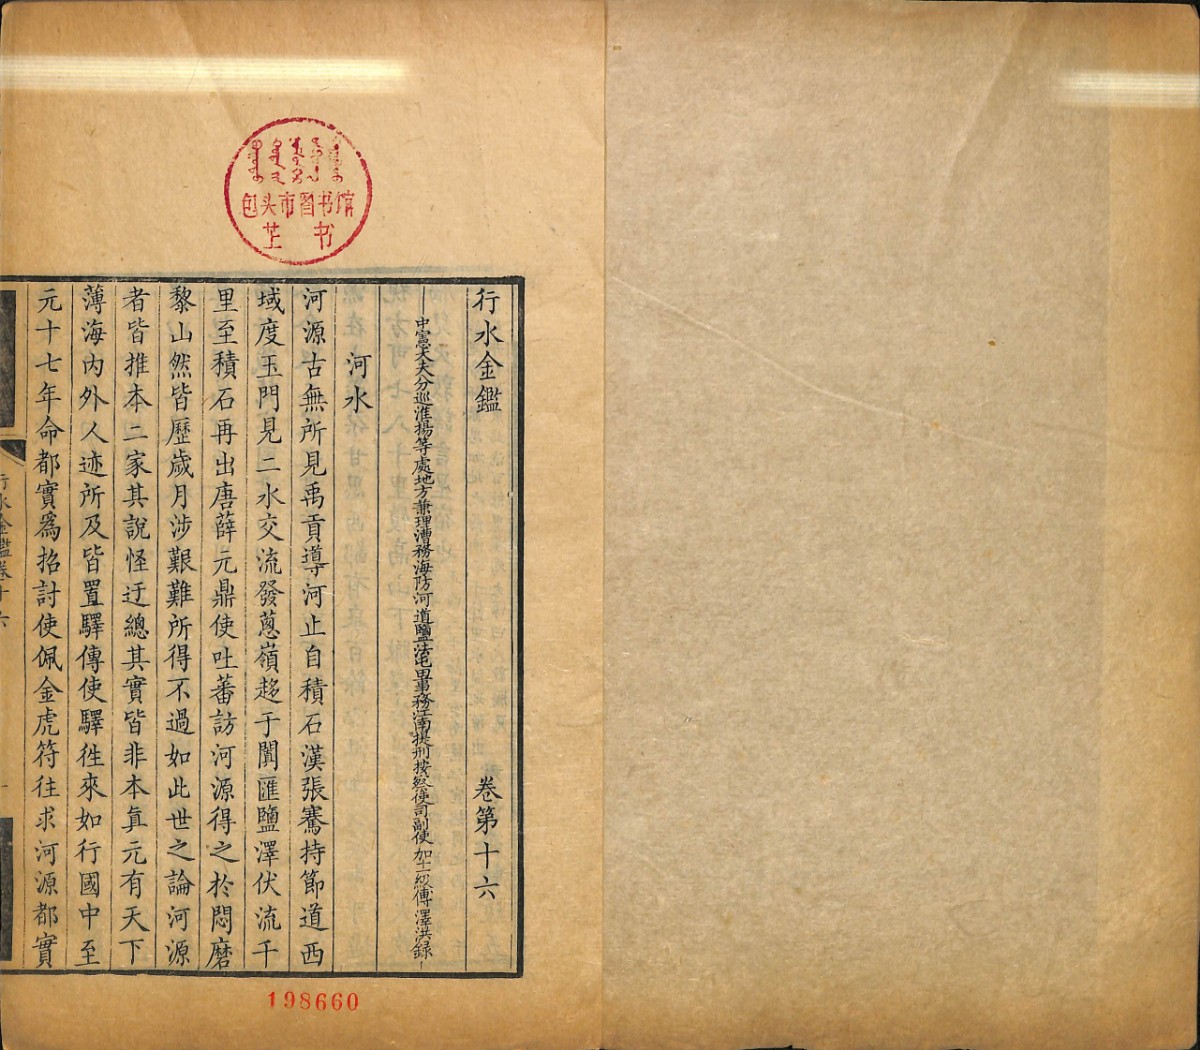 包头市图书馆
行水金鑑 卷第十六
中憲大夫分巡淮揚等處地方兼理漕務海防河道鹽法屯田事務江南提刑按察使司副使加二級傅澤洪録
河水
河源古無所見禹貢導河止自積石漢張騫持節道西
域度玉門見二水交流發蔥嶺趍于闐匯鹽澤伏流千
里至積石再出唐薛元鼎使吐蕃訪河源得之於悶磨
黎山然皆歷歲月涉艱難所得不過如此世之論河源
者皆推本二家其說怪迂總其實皆非本真元有天下
薄海內外人迹所及皆置驛傳使驛徃來如行國中至
元十七年命都實爲招討使佩金虎符往求河源都實
行水金鑑卷十六
一
198660